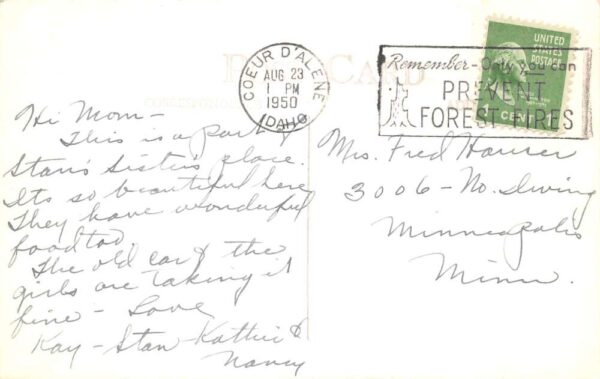 POST CARD
CORRESPONDENCE
COEUR D'ALENE
AUG 23
1 PM
1950
IDAHO
Remember-Only you can
PREVENT
FOREST FIRES
UNITED
STATES
POSTAGE
1 CENT
Hi Mom-
This is a part of
Stan's Sister's place.
Its so beautiful here
They have wonderful
food too.
The old car & the
girls are taking it
fine - Love
Kay - Stan - Kathie &
Nancy
Mrs. Fred Hauser
3006 - No. Irving
Minneapolis
Minn.